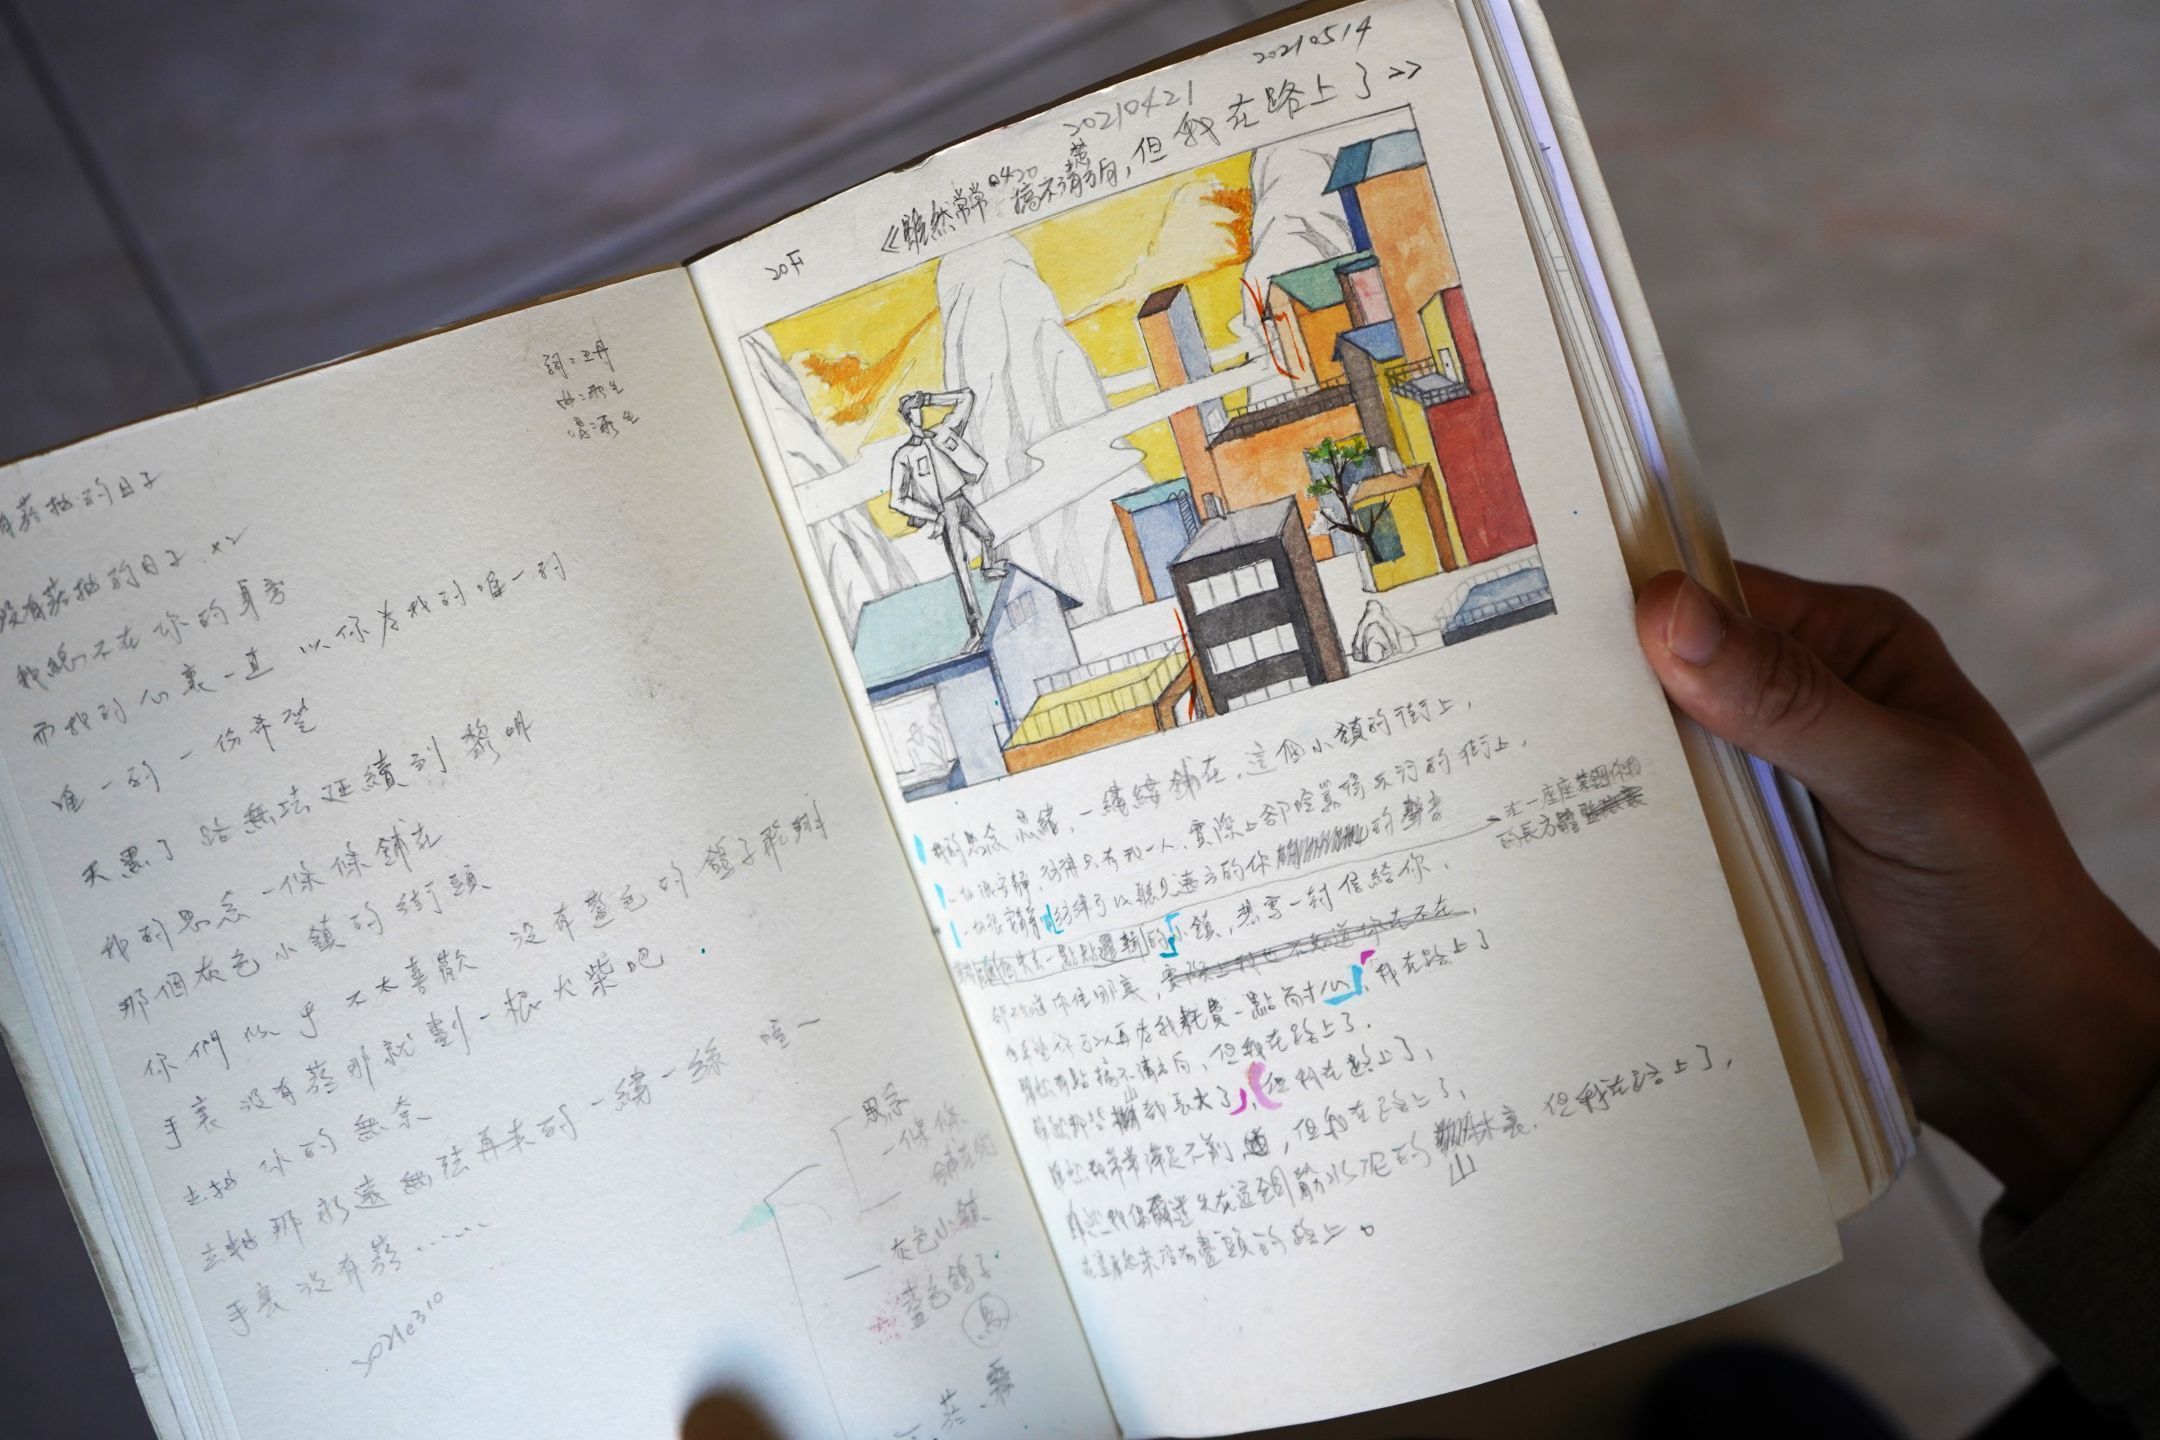 詞：王丹
有菸抽的日子
沒有菸抽的日子 ×2
我總不在你的身旁
而我的心裏一直以你為我的唯一的
唯一的一份希望
天黑了路無法延續到黎明
我的思念一條條鋪在
那個灰色小鎮的街頭
你們似乎不太喜歡沒有藍色的鴿子飛翔
手裏沒有菸那就劃一根火柴吧
去抽你的無奈
去抽那永遠無法再來的一縷一絲
手裏沒有菸……
20210310
思念
一條條
鋪在街
灰色小鎮
藍色鴿子
鳥
菸
20210514
20210421
0420
20F
《雖然常常搞不清楚方向，但我在路上了》
我的思念 思緒，一縷縷鋪在，這個小鎮的街上，
一切很安靜，彷彿只有我一人，實際上卻 的街上，
一切很 彷彿可以聽見遠方的你 的聲音
在一座座
的長方體
失去一點點 的小鎮，想寫一封信給你，
卻不知道你住哪裏，實際上我也不知道你在不在，
但希望你可以再為我耗費一點耐心，我在路上了
雖然有點搞不清方向，但我在路上了．
雖然那些 山 都長大了，但我在路上了，
雖然我常常 不到 ，但我在路上了，
雖然我偶爾迷失在這 鋼筋水泥的 山 林裏，但我在路上了，
在這 沒有盡頭的路上。